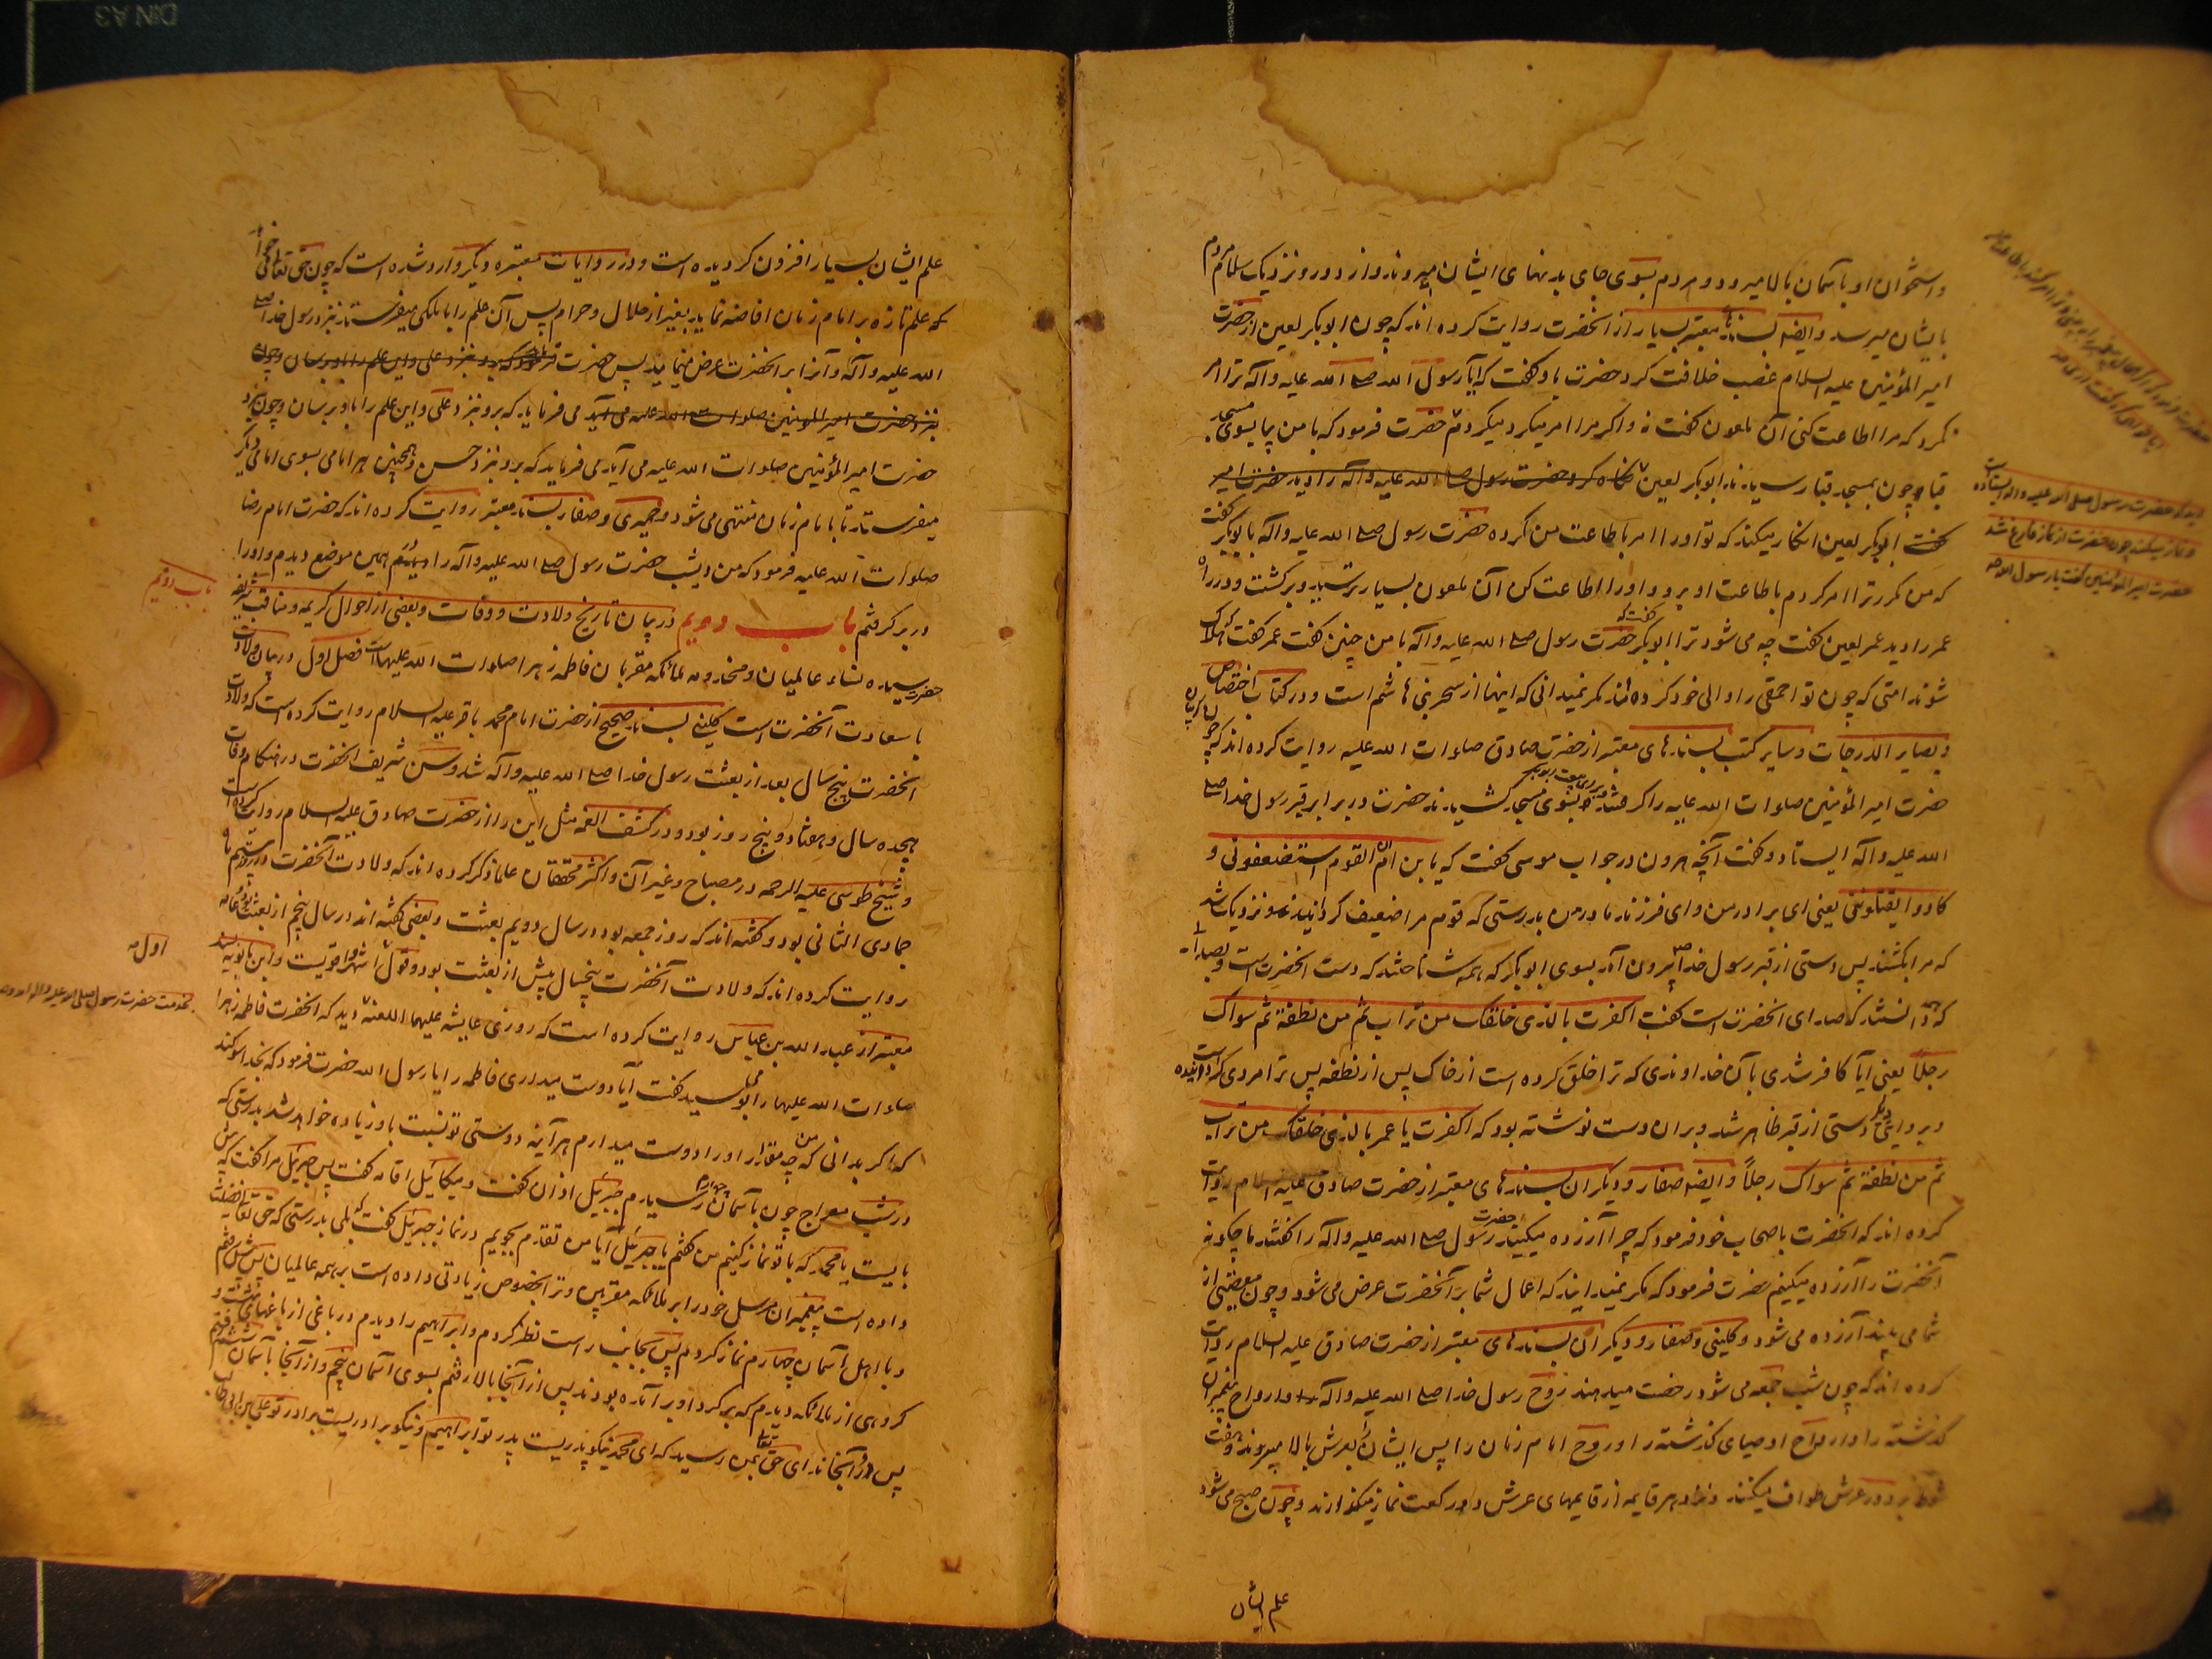 و استخوان او بآسمان بالا میرود و مردم بسوی جای بدنهای ایشان میروند و از دور و نزدیک سلام مردم
بایشان میرسد و ایضا بسندهای معتبر بسیار از آنحضرت روایت کرده اند که چون ابوبکر لعین از حضرت
امیر المؤمنین علیه السلام غصب خلافت کرد حضرت باو گفت که آیا رسول الله صلی الله علیه وآله ترا امر
نکرد که مرا اطاعت کنی آن ملعون گفت نه و اگر مرا امر میکرد میکردم حضرت فرمود که با من بیا بسوی مسجد
قبا و چون بمسجد قبا رسیدند ابوبکر لعین نگاه کرد حضرت رسول صلی الله علیه وآله را دید حضرت امیر
گفت ابوبکر لعین انکار میکند که تو او را امر باطاعت من کرده حضرت رسول صلی الله علیه وآله بابوبکر گفت
که من مکرر ترا امر کردم باطاعت او برو و او را اطاعت کن آن ملعون بسیار ترسید و برگشت و در راه
عمر را دید عمر لعین گفت چه می شود ترا ابوبکر گفت که حضرت رسول صلی الله علیه وآله با من چنین گفت عمر گفت هلاک
شوند امتی که چون تو احمقی را والی خود کرده اند مگر نمیدانی که اینها از سحر بنی هاشم است و در کتاب اختصاص
و بصایر الدرجات و سایر کتب بسندهای معتبر از حضرت صادق صلوات الله علیه روایت کرده اند که چون
حضرت امیر المؤمنین صلوات الله علیه را گرفتند و برای بیعت ابوبکر بسوی مسجد کشیدند حضرت در برابر قبر رسول خدا صلی
الله علیه وآله ایستاد و گفت آنچه هرون در جواب موسی گفت که یا بن ام ان القوم استضعفونی و
کادوا یقتلوننی یعنی ای برادر من و ای فرزند مادر من بدرستی که قوم مرا ضعیف گردانیدند و نزدیک شد
که مرا بکشند پس دستی از قبر رسول خدا بیرون آمد بسوی ابوبکر که همه شناختند که دست آنحضرت است و بصدائی
که دانستند که صدای آنحضرت است گفت اکفرت بالذی خلقک من تراب ثم من نطفة ثم سواک
رجلا یعنی آیا کافر شدی بآن خداوندی که ترا خلق کرده است از خاک پس از نطفه پس ترا مردی گردانیده است
و بروایت دیگر دستی از قبر ظاهر شد و بران دست نوشته بود که اکفرت یا عمر بالذی خلقک من تراب
ثم من نطفة ثم سواک رجلاً و ایضا صفار و دیگران بسندهای معتبر از حضرت صادق علیه السلام روایت
کرده اند که آنحضرت باصحاب خود فرمود که چرا آزرده میکنید حضرت رسول صلی الله علیه وآله را گفتند ما چگونه
آنحضرت را آزرده میکنیم حضرت فرمود که مگر نمیدانید که اعمال شما بر آنحضرت عرض می شود و چون معصیتی از
شما می بیند آزرده می شود و کلینی و صفار و دیگران بسندهای معتبر از حضرت صادق علیه السلام روایت
کرده اند که چون شب جمعه می شود رخصت میدهند روح رسول خدا صلی الله علیه وآله و ارواح پیغمبران
گذشته را و ارواح اوصیای گذشته را و روح امام زمان را پس ایشان بعرش بالا میروند و هفت
شوط بر دور عرش طواف میکنند و نزد هر قایمه از قایمهای عرش دو رکعت نماز میگذارند و چون صبح می شود
علم ایشان
دید که حضرت رسول صلی الله علیه وآله ایستاده
و نماز میکند چون حضرت از نماز فارغ شد
حضرت امیر المؤمنین گفت یا رسول الله
علم ایشان بسیار افزون گردیده است و در روایات معتبره دیگر وارد شده است که چون حق تعالی خواهد
که علم تازه بر امام زمان افاضه نماید بغیر از حلال و حرام پس آن علم را با ملکی میفرستد نزد رسول خدا صلی
الله علیه وآله و آنرا بر آنحضرت عرض مینماید پس حضرت فرمود که برو نزد علی و این علم را باو برسان و چون
نزد حضرت امیر المؤمنین صلوات الله علیه می آید می فرماید که برو نزد علی و این علم را باو برسان و چون نزد
حضرت امیر المؤمنین صلوات الله علیه می آید می فرماید که برو نزد حسن و همچنین هر امامی بسوی امامی دیگر
میفرستد تا بامام زمان منتهی می شود و حمیری و صفار بسند معتبر روایت کرده اند که حضرت امام رضا
صلوات الله علیه فرمود که من دیشب حضرت رسول صلی الله علیه وآله را در همین موضع دیدم و او را
در بر گرفتم باب دویم در بیان تاریخ ولادت و وفات و بعضی از احوال کریمه و مناقب شریفه
حضرت سیده نساء عالمیان و مخدومه ملائکه مقربان فاطمه زهرا صلوات الله علیها است فصل اول در بیان ولادت
با سعادت آنحضرت است کلینی بسند صحیح از حضرت امام محمد باقر علیه السلام روایت کرده است که ولادت
آنحضرت پنج سال بعد از بعثت رسول خدا صلی الله علیه وآله شد و سن شریف آنحضرت در هنگام وفات
هیجده سال و هفتاد و پنج روز بود و در کشف الغمه مثل این را از حضرت صادق علیه السلام روایت کرده است
و شیخ طوسی علیه الرحمه در مصباح و غیر آن و اکثر محققان علما ذکر کرده اند که ولادت آنحضرت در بیستم ماه
جمادی الثانی بود و گفته اند که روز جمعه بود در سال دویم بعثت و بعضی گفته اند در سال پنجم از بعثت بود و عامه
روایت کرده اند که ولادت آنحضرت پنجسال پیش از بعثت بود و قول اول اشهر و اقویست و ابن بابویه بسند
معتبر از عبد الله بن عباس روایت کرده است که روزی عایشه علیهما اللعنه دید که آنحضرت فاطمه زهرا
صلوات الله علیها را میبوسید گفت آیا دوست میداری فاطمه را یا رسول الله حضرت فرمود که بخدا سوگند
که اگر بدانی که من چه مقدار او را دوست میدارم هرآینه دوستی تو نسبت باو زیاده خواهد شد بدرستی که
در شب معراج چون بآسمان چهارم رسیدم جبرئیل اذان گفت و میکائیل اقامه گفت پس جبرئیل مرا گفت که پیش
بایست یا محمد که با تو نماز کنیم من گفتم یا جبرئیل آیا من تقدم بجویم در نماز جبرئیل گفت که بلی بدرستی که حق تعالی فضیلت
داده است پیغمبران مرسل خود را بر ملائکه مقربین و ترا بخصوص زیادتی داده است بر همه عالمیان پس پیش رفتم
و با اهل آسمان چهارم نماز کردم پس بجانب راست نظر کردم و ابراهیم را دیدم در باغی از باغهای بهشت و
گروهی از ملائکه دیدم که بر گرد او بر آمده بودند پس از آنجا بالا رفتم بسوی آسمان پنجم و از آنجا بآسمان ششم رفتم
پس در آنجا ندای حق تعالی بمن رسید که ای محمد نیکو پدریست پدر تو ابراهیم و نیکو برادریست برادر تو علی بن ابی طالب
باب دویم
اول
بخدمت حضرت رسول صلی الله علیه وآله